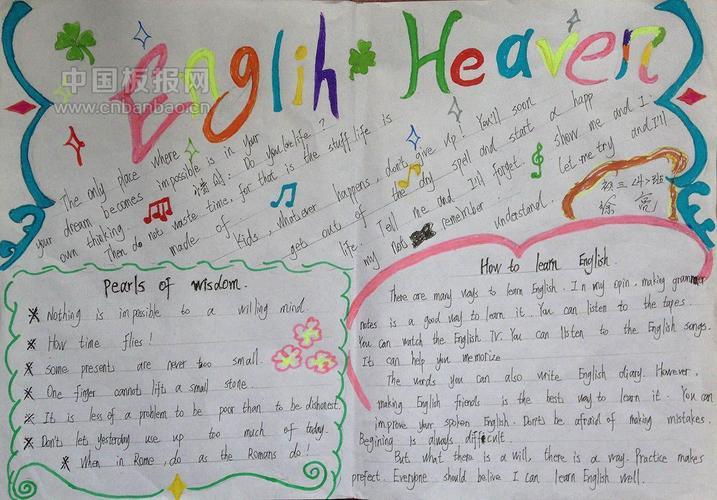 中国板报网
www.cnbanbao.cn
Englih Heaven
The only place where
your dream becomes impossible is in your
own thinking. Do you love life?
Then do not waste time, for that is the stuff life is
made of.
Kids, Whatever happens, don't give up! You'll soon
get out of the dry spell and start a happ
life. Tell me and I'll forget. Show me and I
my not remember. Let me try and I'll
understand.
三
Pearls of wisdom.
Nothing is impossible to a willing mind
How time flies!
Some presents are never too small
One finger cannot lift a small stone.
It is less of a problem to be poor than to be dishonest.
Don't let yesterday use up too much of today.
When in Rome, do as the Romans do!
How to learn English.
There are many ways to learn English. In my opin, making grammer
notes is a good way to learn it. You can listen to the tapes.
You can watch the English TV. You can listen to the English songs.
It can help you memorize
The words you can also write English diary. However,
making English friends is the best way to learn it. You can
improve your spoken English. Don't be afraid of making mistakes.
Begining is always difficult.
But what there is a will, there is a way. Practice makes
prefect. Everyone should belive I can learn English well.